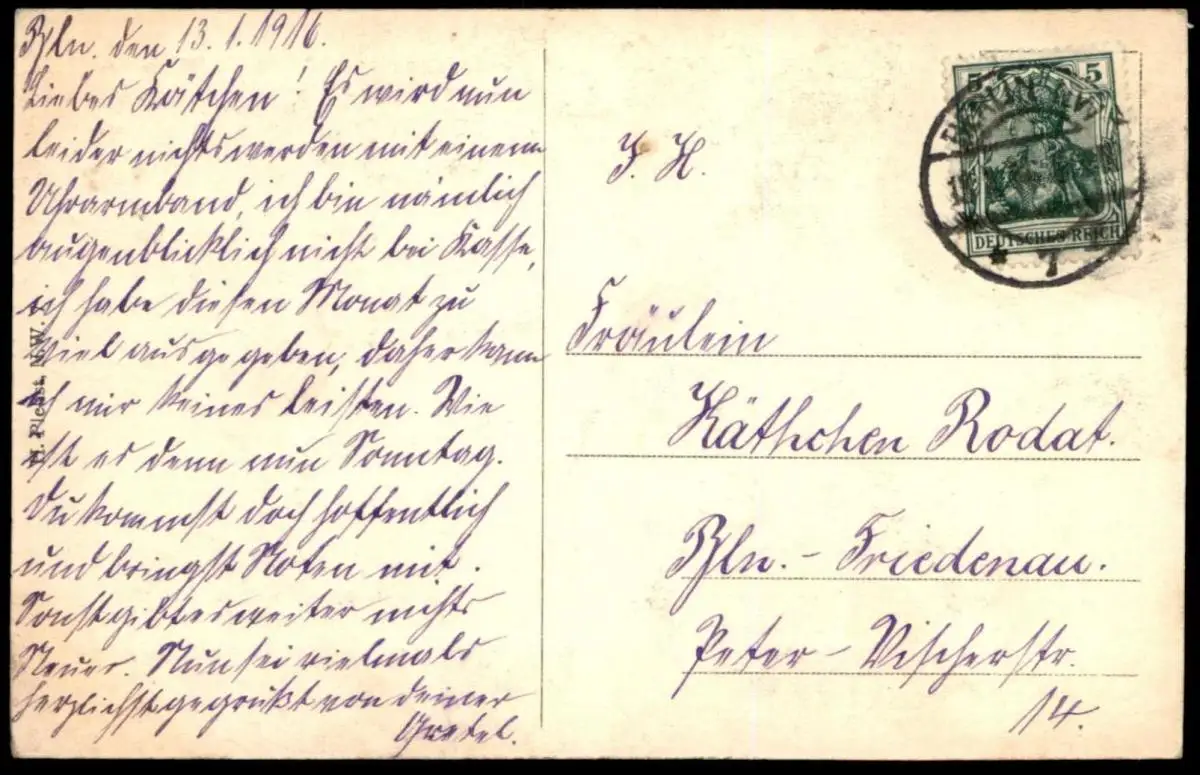 Bln. den 13.1.1916.
Liebes Kätchen! Es wird nun
leider nichts werden mit einem
Uhrarmband, ich bin nämlich
augenblicklich nicht bei Kasse,
ich habe diesen Monat zu
viel ausgegeben, daher kann
ich mir keines leisten. Wie
ist es denn nun Sonntag.
Du kommst doch hoffentlich
und bringst Noten mit.
Sonst gibt es weiter nichts
Neues. Nun sei vielmals
herzlichst gegrüßt von deiner
Gretel.
H. Plesst, N.W.
5 5
BERLIN
DEUTSCHES REICH
* 7
J. H.
Fräulein
Käthchen Rodat.
Bln.-Friedenau.
Peter-Vischerstr.
14.